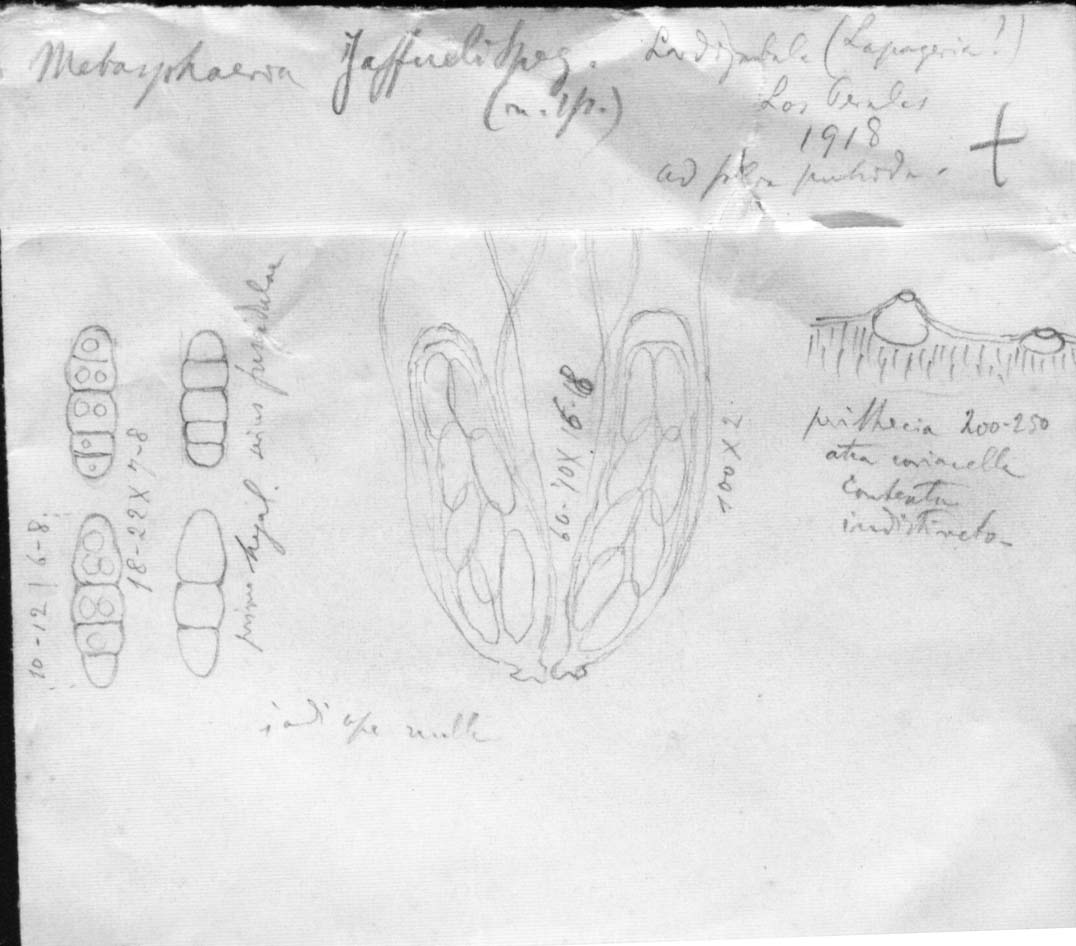 Metasphaeria Jaffueli Speg. (n. sp.)
Lardizabala (Lapageria?)
Los Perales
1918
ad folia putrida.
10-12 | 6-8
18-22 X 7-8
primo hyal. serius
60-70 X 16-18
100 X 2
perithecia 200-250
atra coriacella
contextu
indistincto
iodi ope nulla